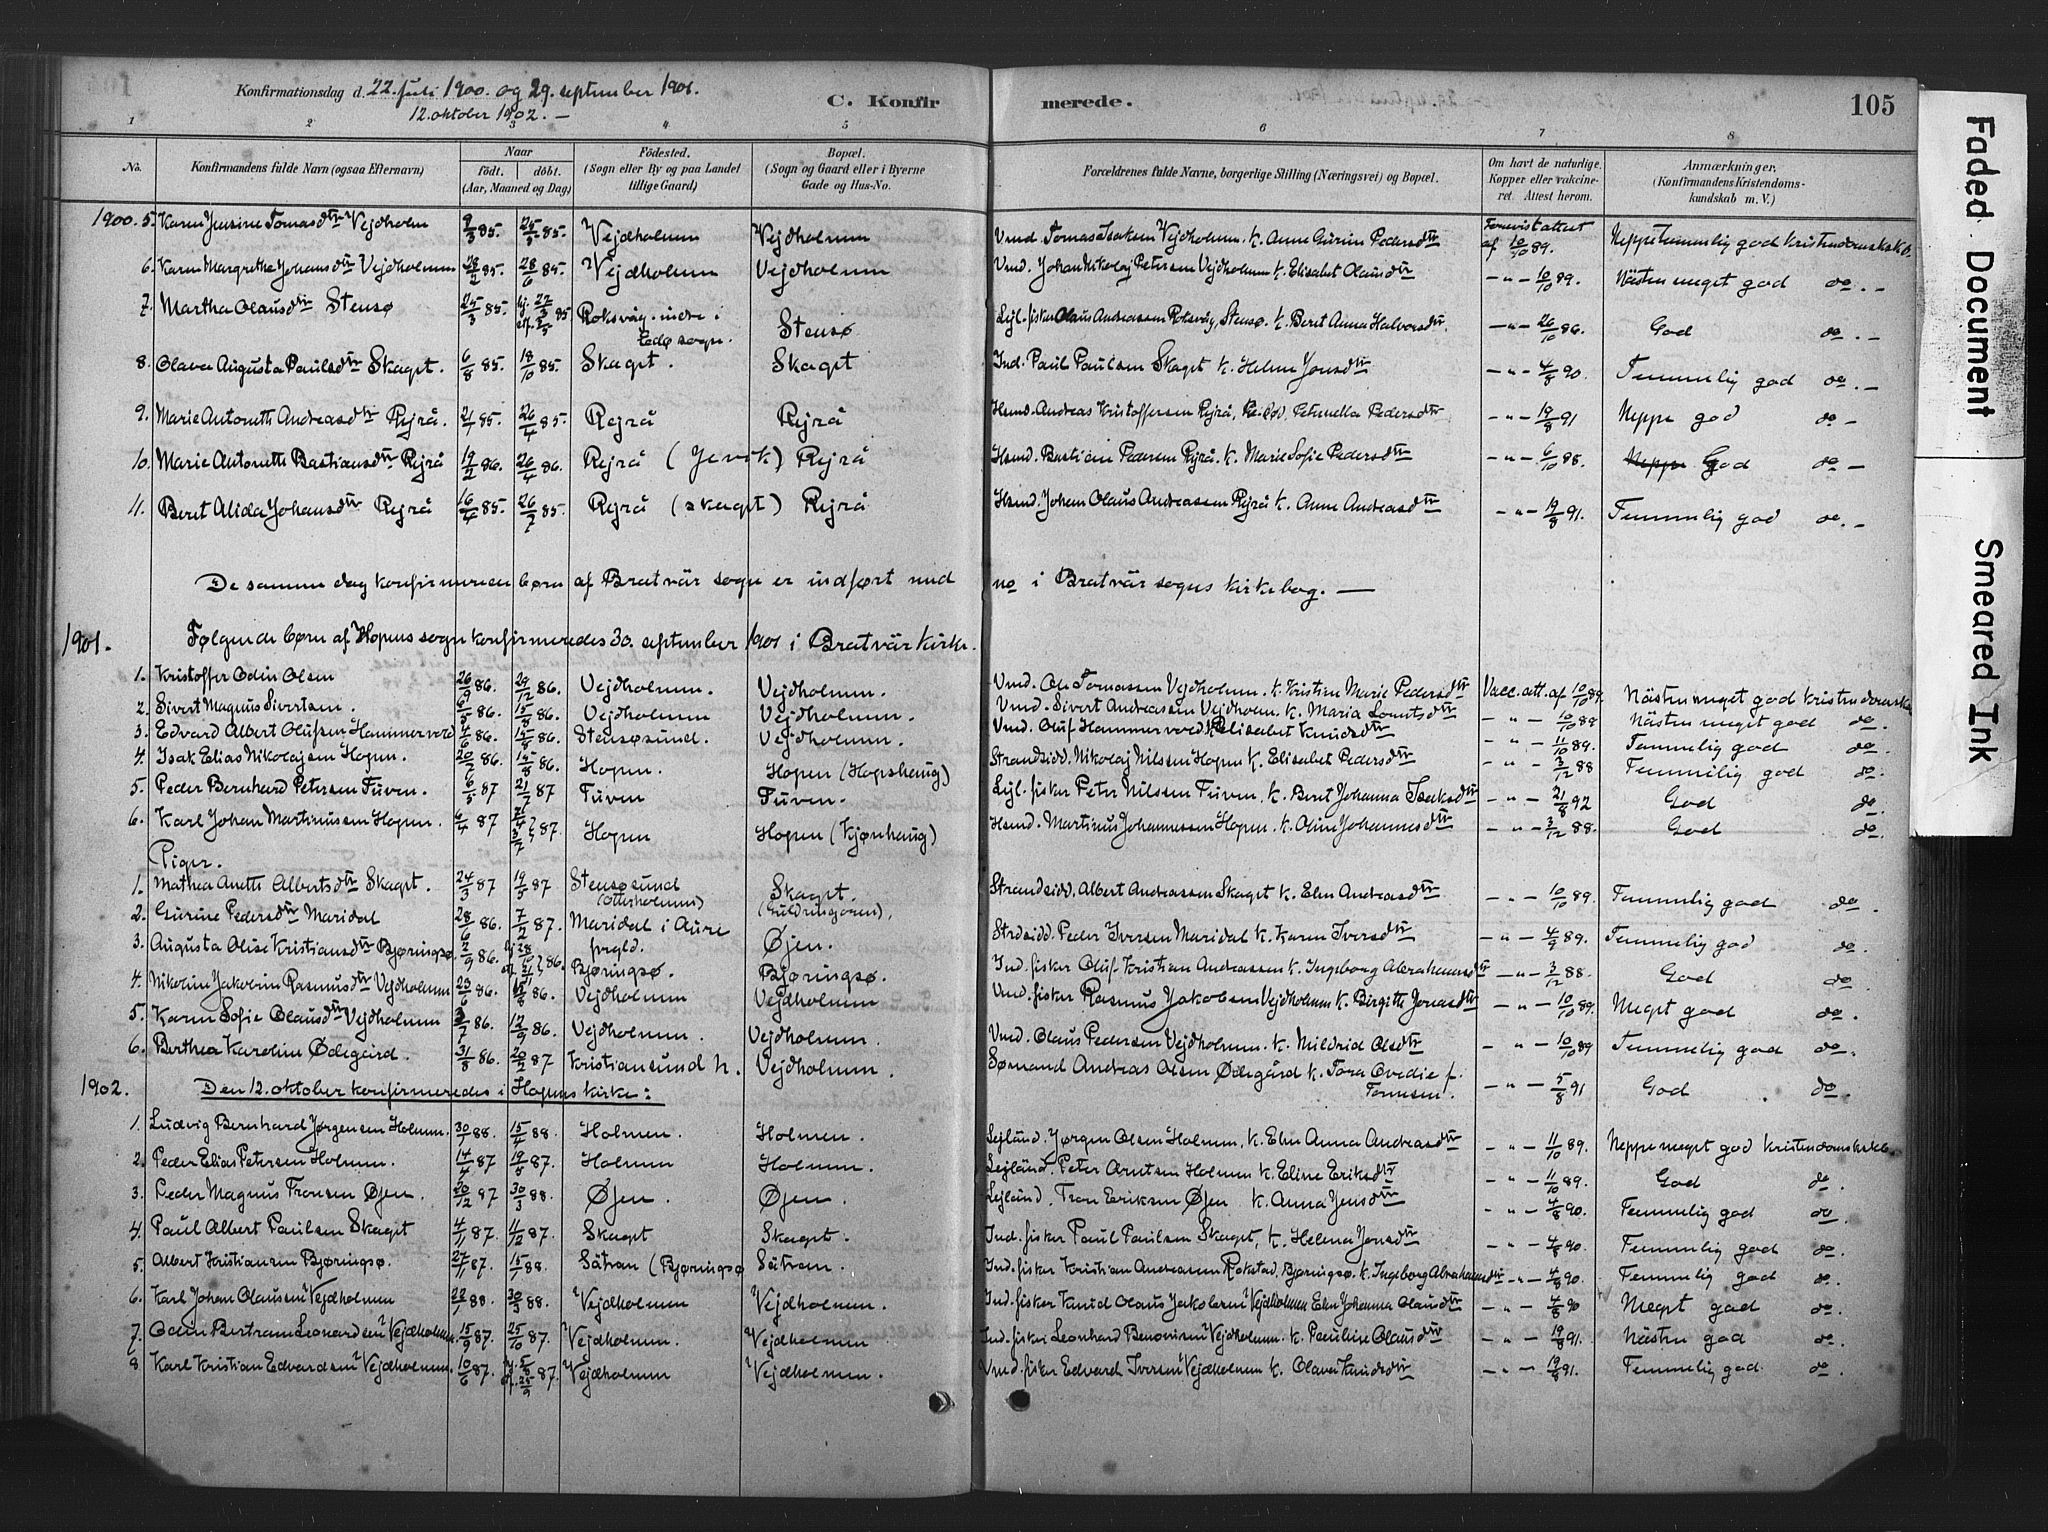 Konfirmationsdag d. 22. juli 1900. og 29. september 1901.
12. oktober 1902. —
C. Konfir merede. 105
1 2 3 4 5 6 7 8
No. Konfirmandens fulde Navn (ogsaa Efternavn) Naar født. døbt. (Aar, Maaned og Dag) Fødested. (Sogn eller By og paa Landet tillige Gaard) Bopæl. (Sogn og Gaard eller i Byerne Gade og Hus-No. Forældrenes fulde Navne, borgerlige Stilling (Næringsvei) og Bopæl. Om havt de naturlige Kopper eller vakcineret. Attest herom. Anmærkninger. (Konfirmandens Kristendomskundskab m. V.)
1900. 5. Karen Jensine Tomasdtr Vejdholm 9/3 85. 25/5 85. Vejdholmen Vejdholmen Vmd. Tomas Isaksen Vejdholmen. K. Anne Gurine Pedersdtr Forevist attest af 10/10 89. Neppe temmelig god kristendomsksk.
6. Karen Margrethe Johansdtr Vejdholmen 28/2 85. 28/6 85. Vejdholmen Vejdholmen Vmd. Johan Nikolaj Petersen Vejdholmen K. Elisabet Olausdtr — " — 10/10 89. Nästen meget god do. —
7. Martha Olausdtr Stensø 25/3 85. Roksvåg indre i Edø sogn. Stensø Lejl. fisker Olaus Andreassen Roksvåg, Stensø. K. Beret Anna Halvorsdtr — " — 26/10 86. God do. —
8. Olava Augusta Paulsdtr Skaget. 6/8 85. 18/10 85. Skaget. Skaget Ind. Paul Paulsen Skaget K. Helene Jonsdtr — " — 4/8 90. Temmelig god do. —
9. Marie Antonette Andreasdtr Rejrå. 21/1 85. 26/4 85. Rejrå Rejrå Hsmd. Andreas Kristoffersen Rejrå, Petrnella Pedersdtr — " — 19/8 91 Neppe god do —
10. Marie Antonette Bastiansdtr Rejrå 19/2 86. 26/4 86. Rejrå (Jervik) Rejrå Hsmd. Bastian Pedersen Rejrå. K. Marie Sofie Pedersdtr — " — 6/10 88. Neppe God do —
11. Beret Alida Johansdtr Rejrå 16/4 85. 26/7 85. Rejrå (Skaget) Rejrå Hsmd. Johan Olaus Andreassen Rejrå K. Anne Andreasdtr — " — 19/8 91. Temmelig god do. —
De samme dag konfirmerede børn af Bratvär sogn er indført med no i Bratvär sogns kirkebog. —
1901. Følgende børn af Hopens sogn konfirmeredes 30. september 1901 i Bratvär kirke.
1. Kristoffer Odin Olsen 26/9 86. 29/12 86. Vejdholmen. Vejdholmen. Vmd. Ole Tomassen Vejdholmen. K. Kristine Marie Pedersdtr Vacc. att. af 10/10 89. Nästen meget god kristendomsk
2. Sivert Magnus Sivertsen. 6/5 86. 15/8 86. Vejdholmen Vejdholmen. Vmd. Sivert Andreassen Vejdholm. K. Maria Lorntsdtr — " — 10/10 88 Nästen meget god do.
3. Edvard Albert Olufsen Hammervold 4/6 86. 15/8 86. Stensøsund. Vejdholmen. Vmd. Oluf Hammervold K. Elisabet Knudsdtr — " — 11/10 89. Temmelig god do.
4. Isak Elias Nikolajsen Hopen. 20/6 86. 15/8 86. Hopen. Hopen (Hopshaug) Strandsidd. Nikolaj Nilssen Hopen K. Elisabet Pedersdtr — " — 3/12 88 Temmelig god do.
5. Peder Bernhard Petersen Tuven. 6/5 87 21/7 87 Tuven Tuven. Lejl. fisker Peter Nilssen Tuven. K. Beret Johanna Isaksdtr — " — 21/8 92 God do
6. Karl Johan Martinussen Hopen. 6/4 87 87. Hopen Hopen (Kjønhaug) Hsmd. Martinus Johannessen Hopen. K. Oline Johannesdtr — " — 3/12 88. God do.
Piger.
1. Mathea Anette Albertsdtr Skaget. 24/3 87 19/5 87 Stensøsund (Otterholmen) Skaget. (Guldringøren). Strandsidd. Albert Andreassen Skaget K. Elen Andreasdtr — " — 10/10 89. Temmelig god do.
2. Gurine Pedersdtr Maridal 28/6 86. 7/2 87. Maridal i Aure prgld. Øjen. Strdsidd. Peder Iversen Maridal K. Karen Iversdtr — " — 4/9 89. Temmelig god do.
3. Augusta Oline Kristiansdtr Bjøringsø. 2/9 86. 86. Bjøringsø. Bjøringsø. Ind. fisker Oluf Kristian Andreassen K. Ingeborg Abrahamsdtr — " — 3/12 88. God do.
4. Nikoline Jakobine Rasmusdtr Vejdholmen 23/6 86. 15/8 86. Vejdholmen Vejdholmen Vmd. fisker Rasmus Jakobsen Vejdholmen K. Birgitte Jonasdtr — " — 10/10 89. Meget god do.
5. Karen Sofie Olausdtr Vejdholmen 3/7 86. 12/9 86. Vejdholmen. Vejdholmen. Vmd. Olaus Pedersen Vejdholmen. K. Mildrid Olsdtr — " — 10/10 89 Temmelig god do.
6. Berthea Karoline Ødegård. 31/8 86. 20/2 87 Kristiansund N. Vejdholmen. Sømand Andreas Olsen Ødegård K. Tora Ovedie f. Tønnesen. — " — 5/8 91 God do.
1902. Den 12. oktober konfirmeredes i Hopens kirke:
1. Ludvig Bernhard Jørgensen Holmen. 30/1 88. 15/4 88. Holmen. Holmen. Lejländ. Jørgen Olsen Holmen. K. Elen Anna Andreasdtr — " — 11/10 89. Neppe meget god kristendomsksk.
2. Peder Elias Petersen Holmen. 14/4 87 19/5 87. Holmen Holmen. Lejländ. Peter Arntsen Holmen K. Eline Eriksdtr — " — 11/10 89. God do.
3. Peder Magnus Tronsen Øjen. 20/12 87 30/3 88. Øjen. Øjen. Lejländ. Tron Eriksen Øjen K. Anna Jensdtr — " — 4/8 90. Temmelig god do.
4. Paul Albert Paulsen Skaget 4/11 87. 11/12 87. Skaget Skaget. Ind. fisker Paul Paulsen Skaget, K. Helena Jonsdtr — " — 4/8 90. Temmelig god do.
5. Albert Kristiansen Bjøringsø. 27/11 87. 15/1 88. Sätran (Bjøringsø Sätran. Ind. fisker Kristian Andreassen Rokstad, Bjøringsø. K. Ingeborg Abrahamsdtr — " — 4/8 90. Temmelig god do.
6. Karl Johan Olaussen Vejdholmen 22/1 88. 30/3 88. Vejdholmen Vejdholmen. Ind. fisker Knud Olaus Jakobsen Vejdholmen Elen Johanna Olausdtr — " — 4/8 90 Meget god do.
7. Odin Bertram Leonardsen Vejdholmen. 15/9 87. 25/10 87. Vejdholmen. Vejdholmen Ind. fisker Leonhard Benonisen Vejdholmen. K. Pauline Olausdtr — " — 19/8 91. Nästen god do.
8 Karl Kristian Edvardsen Vejdholmen. 10/6 87. 87. Vejdholmen Vejdholmen. Vmd. fisker Edvard Iversen Vejdholmen K. Olava Knudsdtr — " — 19/8 91. Temmelig god do.
Faded Document
Smeared Ink